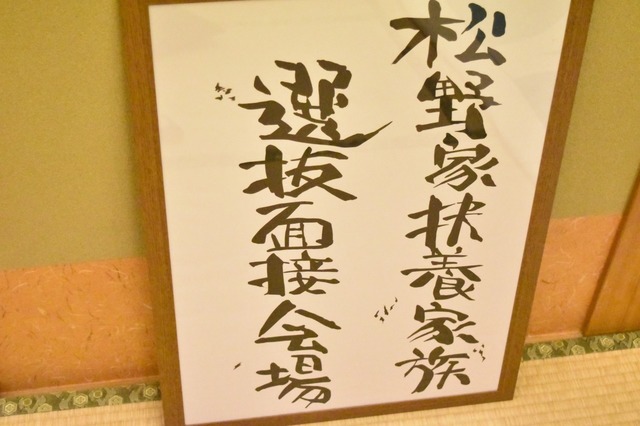 松野家扶養家族
選抜面接会場